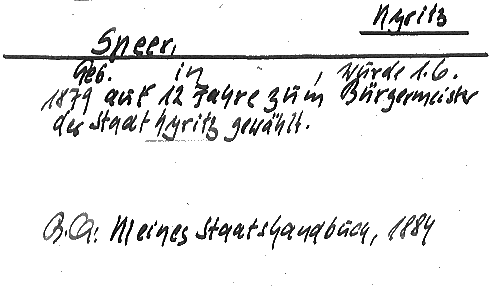 Kyritz
Speer,
Geb. in , wurde 1.6.
1879 auf 12 Jahre zum Bürgermeister
der Stadt Kyritz gewählt.
B.A: Kleines Staatshandbuch, 1884